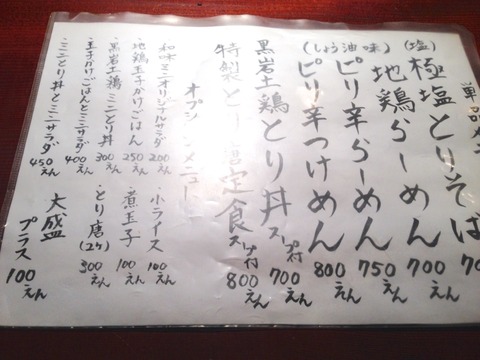 単品メニ
極塩とりそば 70
(塩) 地鶏らーめん 700えん
(しょう油味) ピリ辛らーめん 750えん
ピリ辛つけめん 800えん
黒岩土鶏とり丼 スープ付 700えん
特製とり唐定食 スープ付 800えん
オプションメニュー
和味ミニオリジナルサラダ 200えん
地鶏玉子かけごはん 250えん
黒岩土鶏ミニとり丼 300えん
玉子かけごはんとミニサラダ 400えん
ミニとり丼とミニサラダ 450えん
小ライス 100えん
煮玉子 100えん
とり唐(2ケ) 300えん
大盛 プラス 100えん